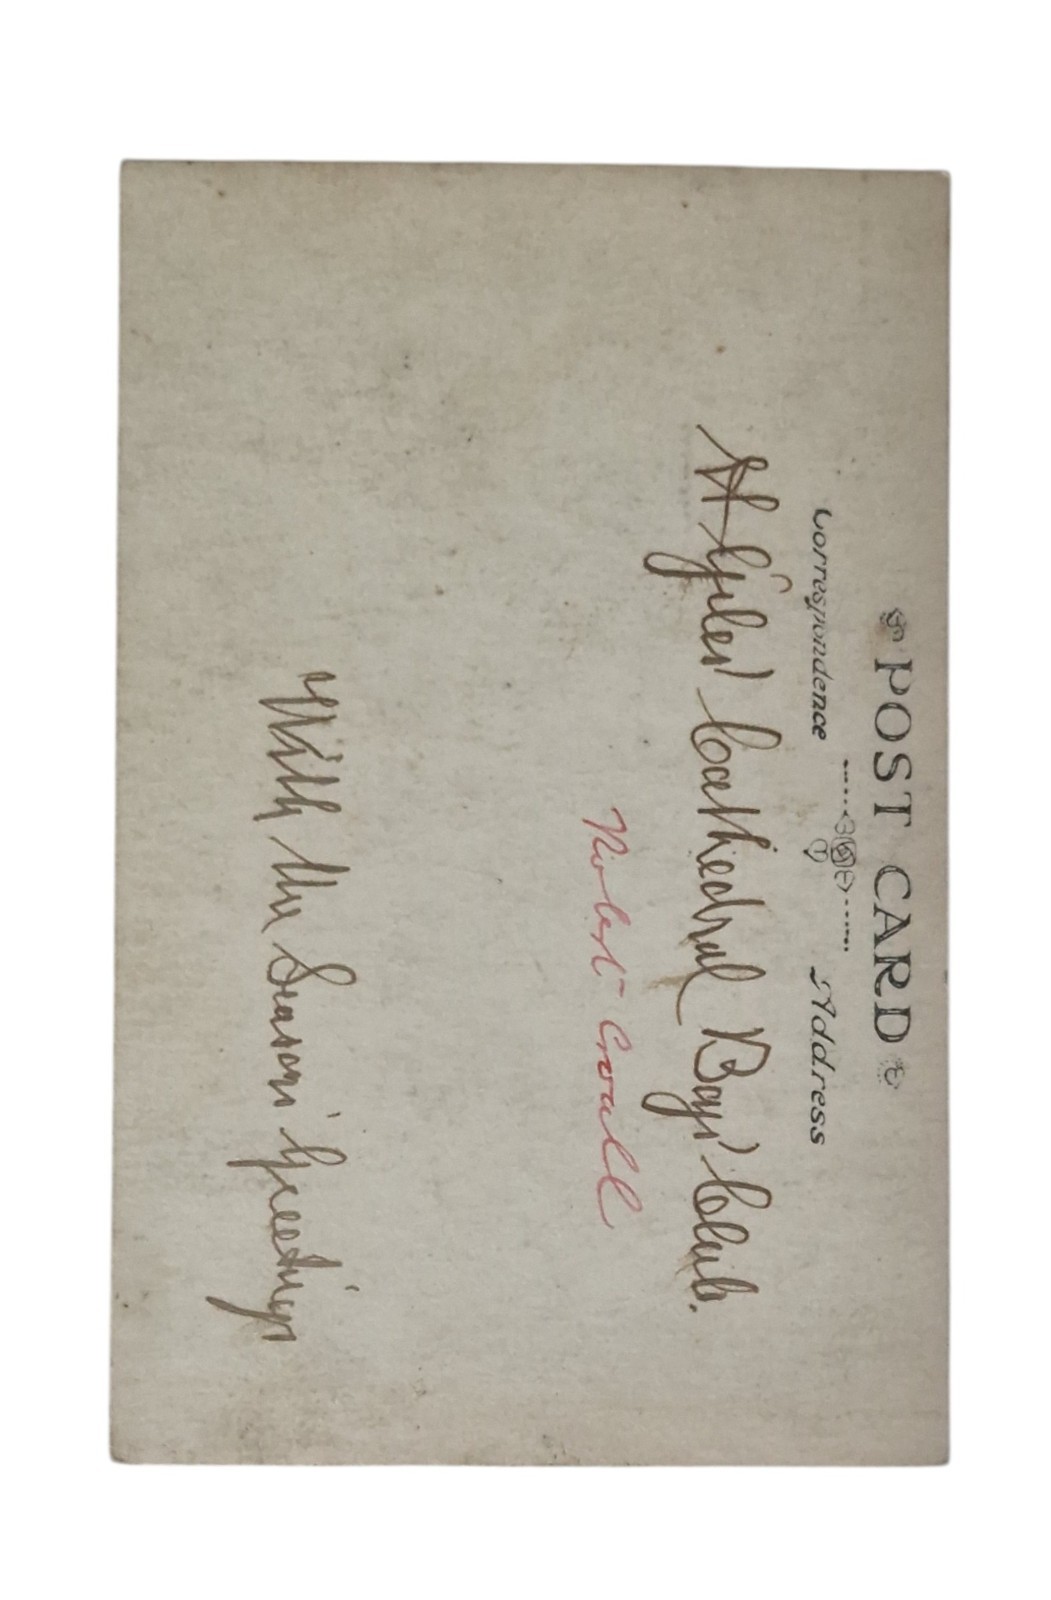 POST CARD
Correspondence Address
St Giles' Cathedral Boys' Club.
Robert Croall
With the Season's Greetings